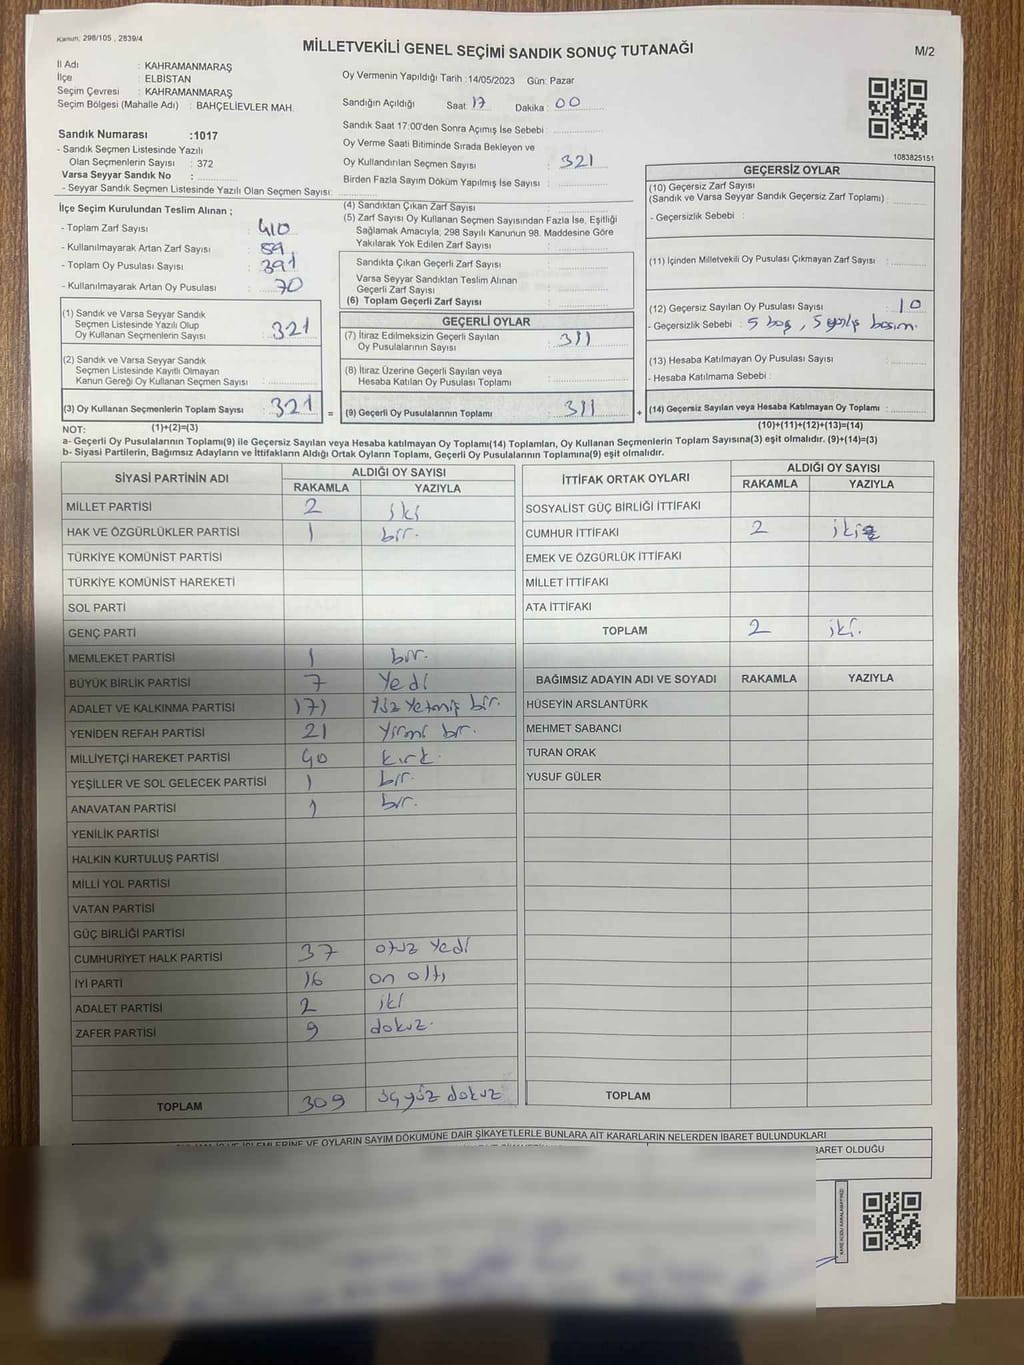 Kanun, 298/105 , 2839/4
MİLLETVEKİLİ GENEL SEÇİMİ SANDIK SONUÇ TUTANAĞI
M/2
İl Adı : KAHRAMANMARAŞ
İlçe : ELBİSTAN
Seçim Çevresi : KAHRAMANMARAŞ
Seçim Bölgesi (Mahalle Adı) : BAHÇELİEVLER MAH.
Sandık Numarası :1017
- Sandık Seçmen Listesinde Yazılı
Olan Seçmenlerin Sayısı : 372
Varsa Seyyar Sandık No :
- Seyyar Sandık Seçmen Listesinde Yazılı Olan Seçmen Sayısı:
Oy Vermenin Yapıldığı Tarih :14/05/2023 Gün: Pazar
Sandığın Açıldığı Saat 17 Dakika 00
Sandık Saat 17:00'den Sonra Açımış İse Sebebi :
Oy Verme Saati Bitiminde Sırada Bekleyen ve
Oy Kullandırılan Seçmen Sayısı : 321
Birden Fazla Sayım Döküm Yapılmış İse Sayısı :
1083825151
İlçe Seçim Kurulundan Teslim Alınan ;
- Toplam Zarf Sayısı : 410
- Kullanılmayarak Artan Zarf Sayısı : 89
- Toplam Oy Pusulası Sayısı : 391
- Kullanılmayarak Artan Oy Pusulası : 70
(1) Sandık ve Varsa Seyyar Sandık
Seçmen Listesinde Yazılı Olup
Oy Kullanan Seçmenlerin Sayısı : 321
(2) Sandık ve Varsa Seyyar Sandık
Seçmen Listesinde Kayıtlı Olmayan
Kanun Gereği Oy Kullanan Seçmen Sayısı :
(3) Oy Kullanan Seçmenlerin Toplam Sayısı : 321 =
(1)+(2)=(3)
(4) Sandıktan Çıkan Zarf Sayısı :
(5) Zarf Sayısı Oy Kullanan Seçmen Sayısından Fazla İse, Eşitliği
Sağlamak Amacıyla, 298 Sayılı Kanunun 98. Maddesine Göre
Yakılarak Yok Edilen Zarf Sayısı :
Sandıkta Çıkan Geçerli Zarf Sayısı :
Varsa Seyyar Sandıktan Teslim Alınan
Geçerli Zarf Sayısı :
(6) Toplam Geçerli Zarf Sayısı :
GEÇERLİ OYLAR
(7) İtiraz Edilmeksizin Geçerli Sayılan
Oy Pusulalarının Sayısı : 311
(8) İtiraz Üzerine Geçerli Sayılan veya
Hesaba Katılan Oy Pusulası Toplamı :
(9) Geçerli Oy Pusulalarının Toplamı : 311 +
GEÇERSİZ OYLAR
(10) Geçersiz Zarf Sayısı
(Sandık ve Varsa Seyyar Sandık Geçersiz Zarf Toplamı) :
- Geçersizlik Sebebi :
(11) İçinden Milletvekili Oy Pusulası Çıkmayan Zarf Sayısı :
(12) Geçersiz Sayılan Oy Pusulası Sayısı : 10
- Geçersizlik Sebebi : 5 boş, 5 yanlış basım.
(13) Hesaba Katılmayan Oy Pusulası Sayısı :
- Hesaba Katılmama Sebebi :
(14) Geçersiz Sayılan veya Hesaba Katılmayan Oy Toplamı :
(10)+(11)+(12)+(13)=(14)
NOT:
a- Geçerli Oy Pusulalarının Toplamı(9) ile Geçersiz Sayılan veya Hesaba katılmayan Oy Toplamı(14) Toplamları, Oy Kullanan Seçmenlerin Toplam Sayısına(3) eşit olmalıdır. (9)+(14)=(3)
b- Siyasi Partilerin, Bağımsız Adayların ve İttifakların Aldığı Ortak Oyların Toplamı, Geçerli Oy Pusulalarının Toplamına(9) eşit olmalıdır.
SİYASİ PARTİNİN ADI ALDIĞI OY SAYISI
RAKAMLA YAZIYLA
MİLLET PARTİSİ 2 iki
HAK VE ÖZGÜRLÜKLER PARTİSİ 1 bir.
TÜRKİYE KOMÜNİST PARTİSİ
TÜRKİYE KOMÜNİST HAREKETİ
SOL PARTİ
GENÇ PARTİ
MEMLEKET PARTİSİ 1 bir.
BÜYÜK BİRLİK PARTİSİ 7 Yedi
ADALET VE KALKINMA PARTİSİ 171 Yüz Yetmiş bir.
YENİDEN REFAH PARTİSİ 21 Yirmi bir.
MİLLİYETÇİ HAREKET PARTİSİ 40 kırk.
YEŞİLLER VE SOL GELECEK PARTİSİ 1 bir.
ANAVATAN PARTİSİ 1 bir.
YENİLİK PARTİSİ
HALKIN KURTULUŞ PARTİSİ
MİLLİ YOL PARTİSİ
VATAN PARTİSİ
GÜÇ BİRLİĞİ PARTİSİ
CUMHURİYET HALK PARTİSİ 37 otuz yedi
İYİ PARTİ 16 on altı
ADALET PARTİSİ 2 iki
ZAFER PARTİSİ 9 dokuz.
TOPLAM 309 üç yüz dokuz
İTTİFAK ORTAK OYLARI ALDIĞI OY SAYISI
RAKAMLA YAZIYLA
SOSYALİST GÜÇ BİRLİĞİ İTTİFAKI
CUMHUR İTTİFAKI 2 iki
EMEK VE ÖZGÜRLÜK İTTİFAKI
MİLLET İTTİFAKI
ATA İTTİFAKI
TOPLAM 2 iki.
BAĞIMSIZ ADAYIN ADI VE SOYADI RAKAMLA YAZIYLA
HÜSEYİN ARSLANTÜRK
MEHMET SABANCI
TURAN ORAK
YUSUF GÜLER
TOPLAM
VE OYLARIN SAYIM DÖKÜMÜNE DAİR ŞİKAYETLERLE BUNLARA AİT KARARLARIN NELERDEN İBARET BULUNDUKLARI
BARET OLDUĞU